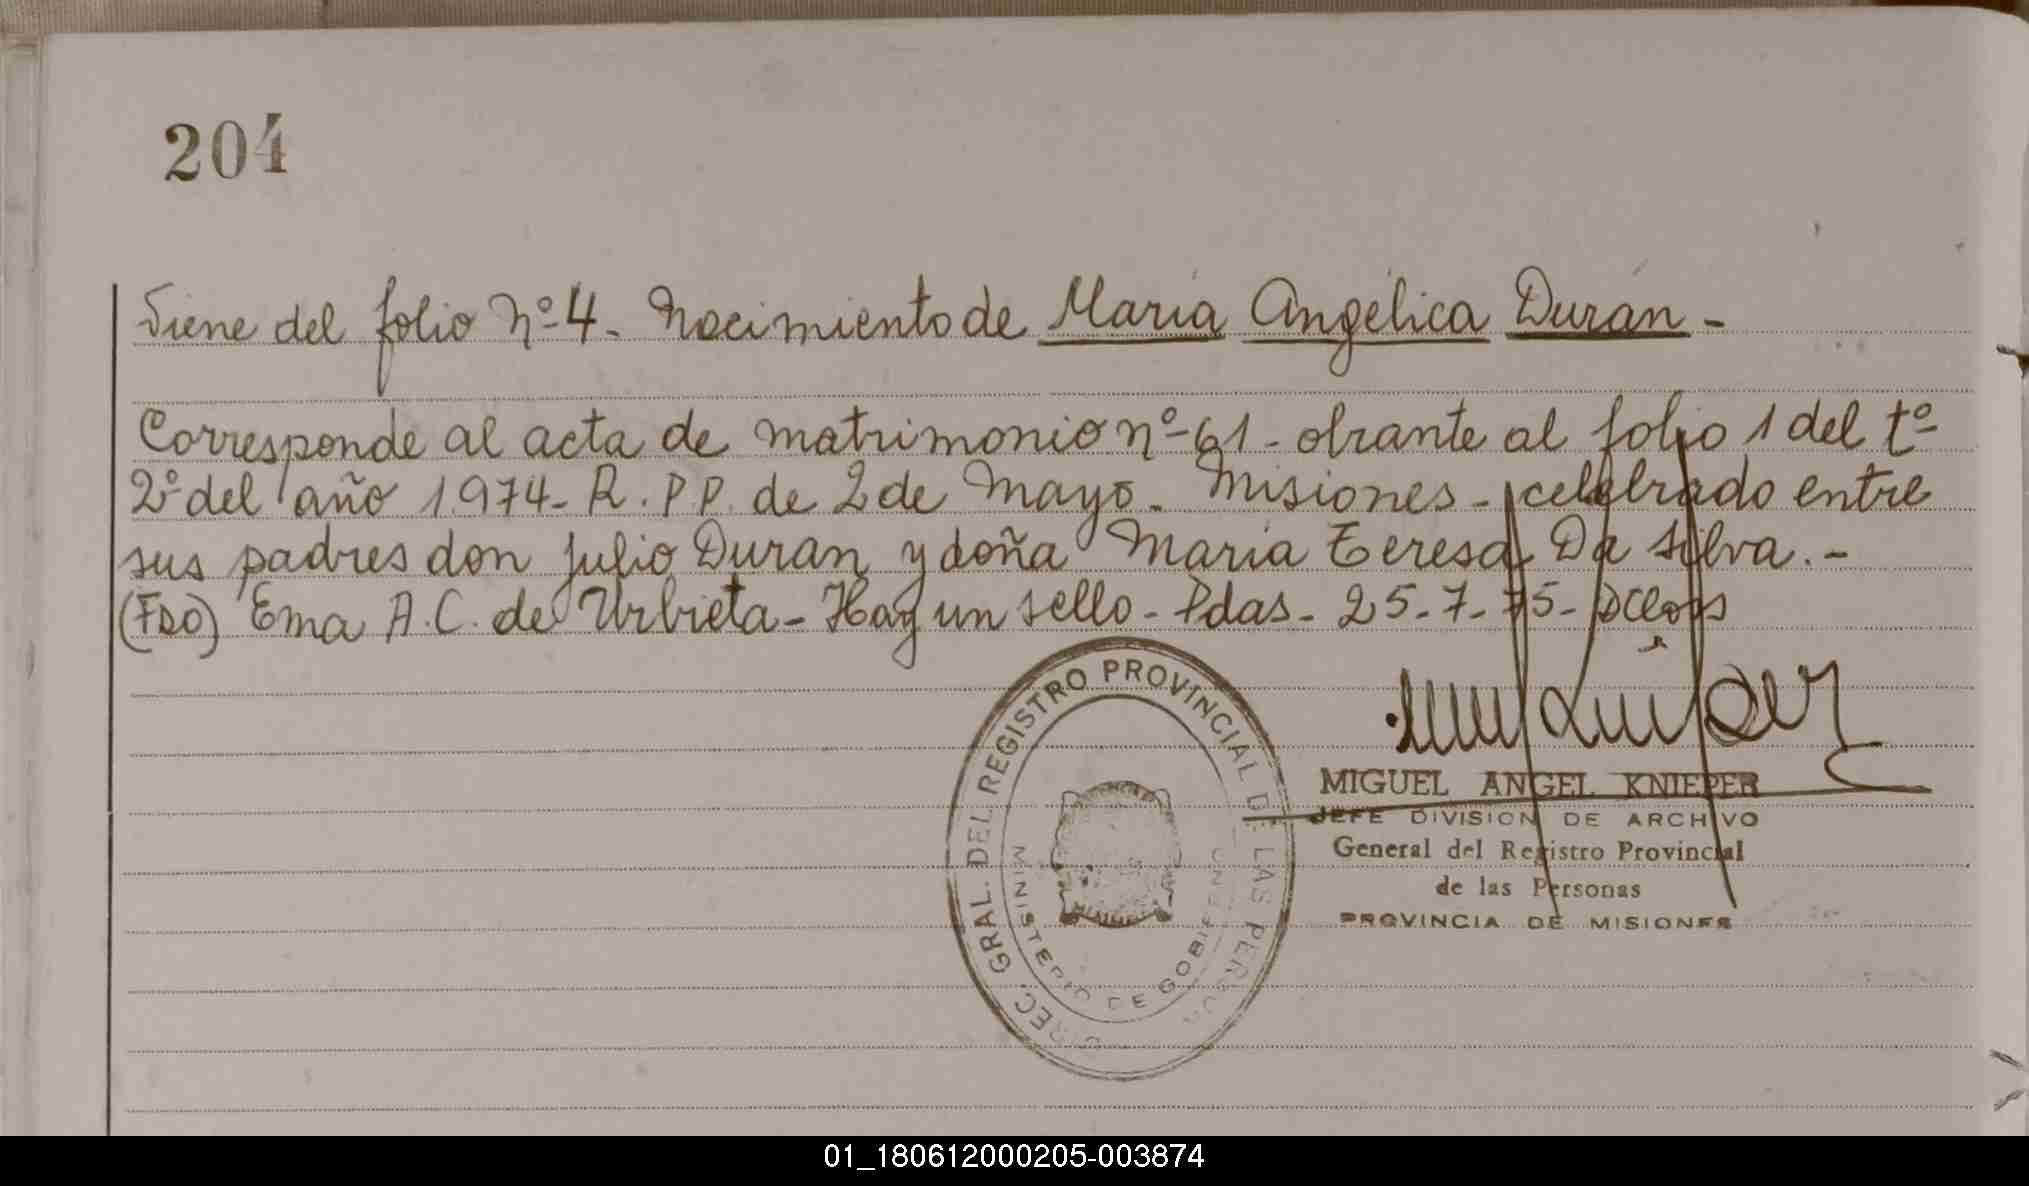 204
Viene del folio Nº 4 - Nacimiento de María Angélica Durán -
Corresponde al acta de matrimonio nº 61 - obrante al folio 1 del tº
2º del año 1974 - R.P.P. de 2 de Mayo - Misiones - celebrado entre
sus padres don Julio Duran y doña María Teresa Da Silva. -
(FDO) Ema A.C. de Urbieta - Hay un sello - Pdas - 25-7-75 -
DIREC. GRAL. DEL REGISTRO PROVINCIAL DE LAS PERSONA
MINISTERIO DE GOBIERNO
MIGUEL ANGEL KNIEPER
JEFE DIVISION DE ARCHIVO
General del Registro Provincial
de las Personas
PROVINCIA DE MISIONES
01_180612000205-003874